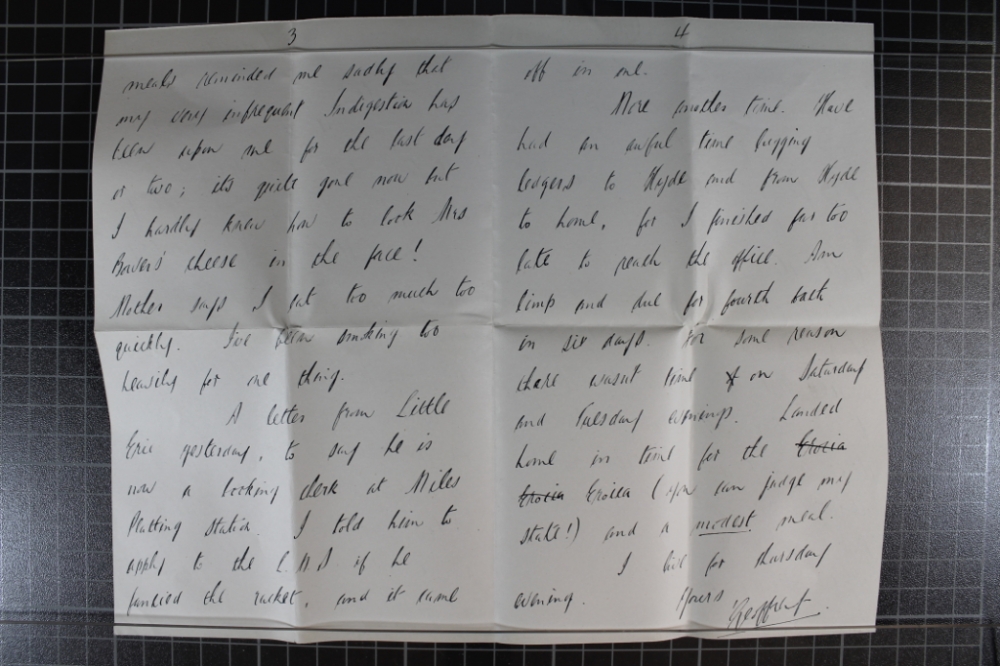 3
meals reminded me sadly that
my very infrequent Indigestion has
been upon me for the last day
or two; its quite gone now but
I hardly knew how to look Mrs
Bowers' cheese in the face!
Mother says I eat too much too
quickly. I've been smoking too
heavily for one thing.
A letter from Little
Eric yesterday, to say he is
now a booking clerk at Miles
Platting station. I told him to
apply to the L.N.S. if he
fancied the racket, and it came
4
off in one.
More another time. Have
had an awful time lugging
ledgers to Hyde and from Hyde
to home, for I finished far too
late to reach the office. Am
limp and due for fourth bath
in six days. For some reason
there wasnt time on Saturday
and Tuesday evenings. Landed
home in time for the Eroica
Eroica Eroica (you can judge my
state!) and a modest meal.
I live for thursday
evening. Yours
Geoffrey.